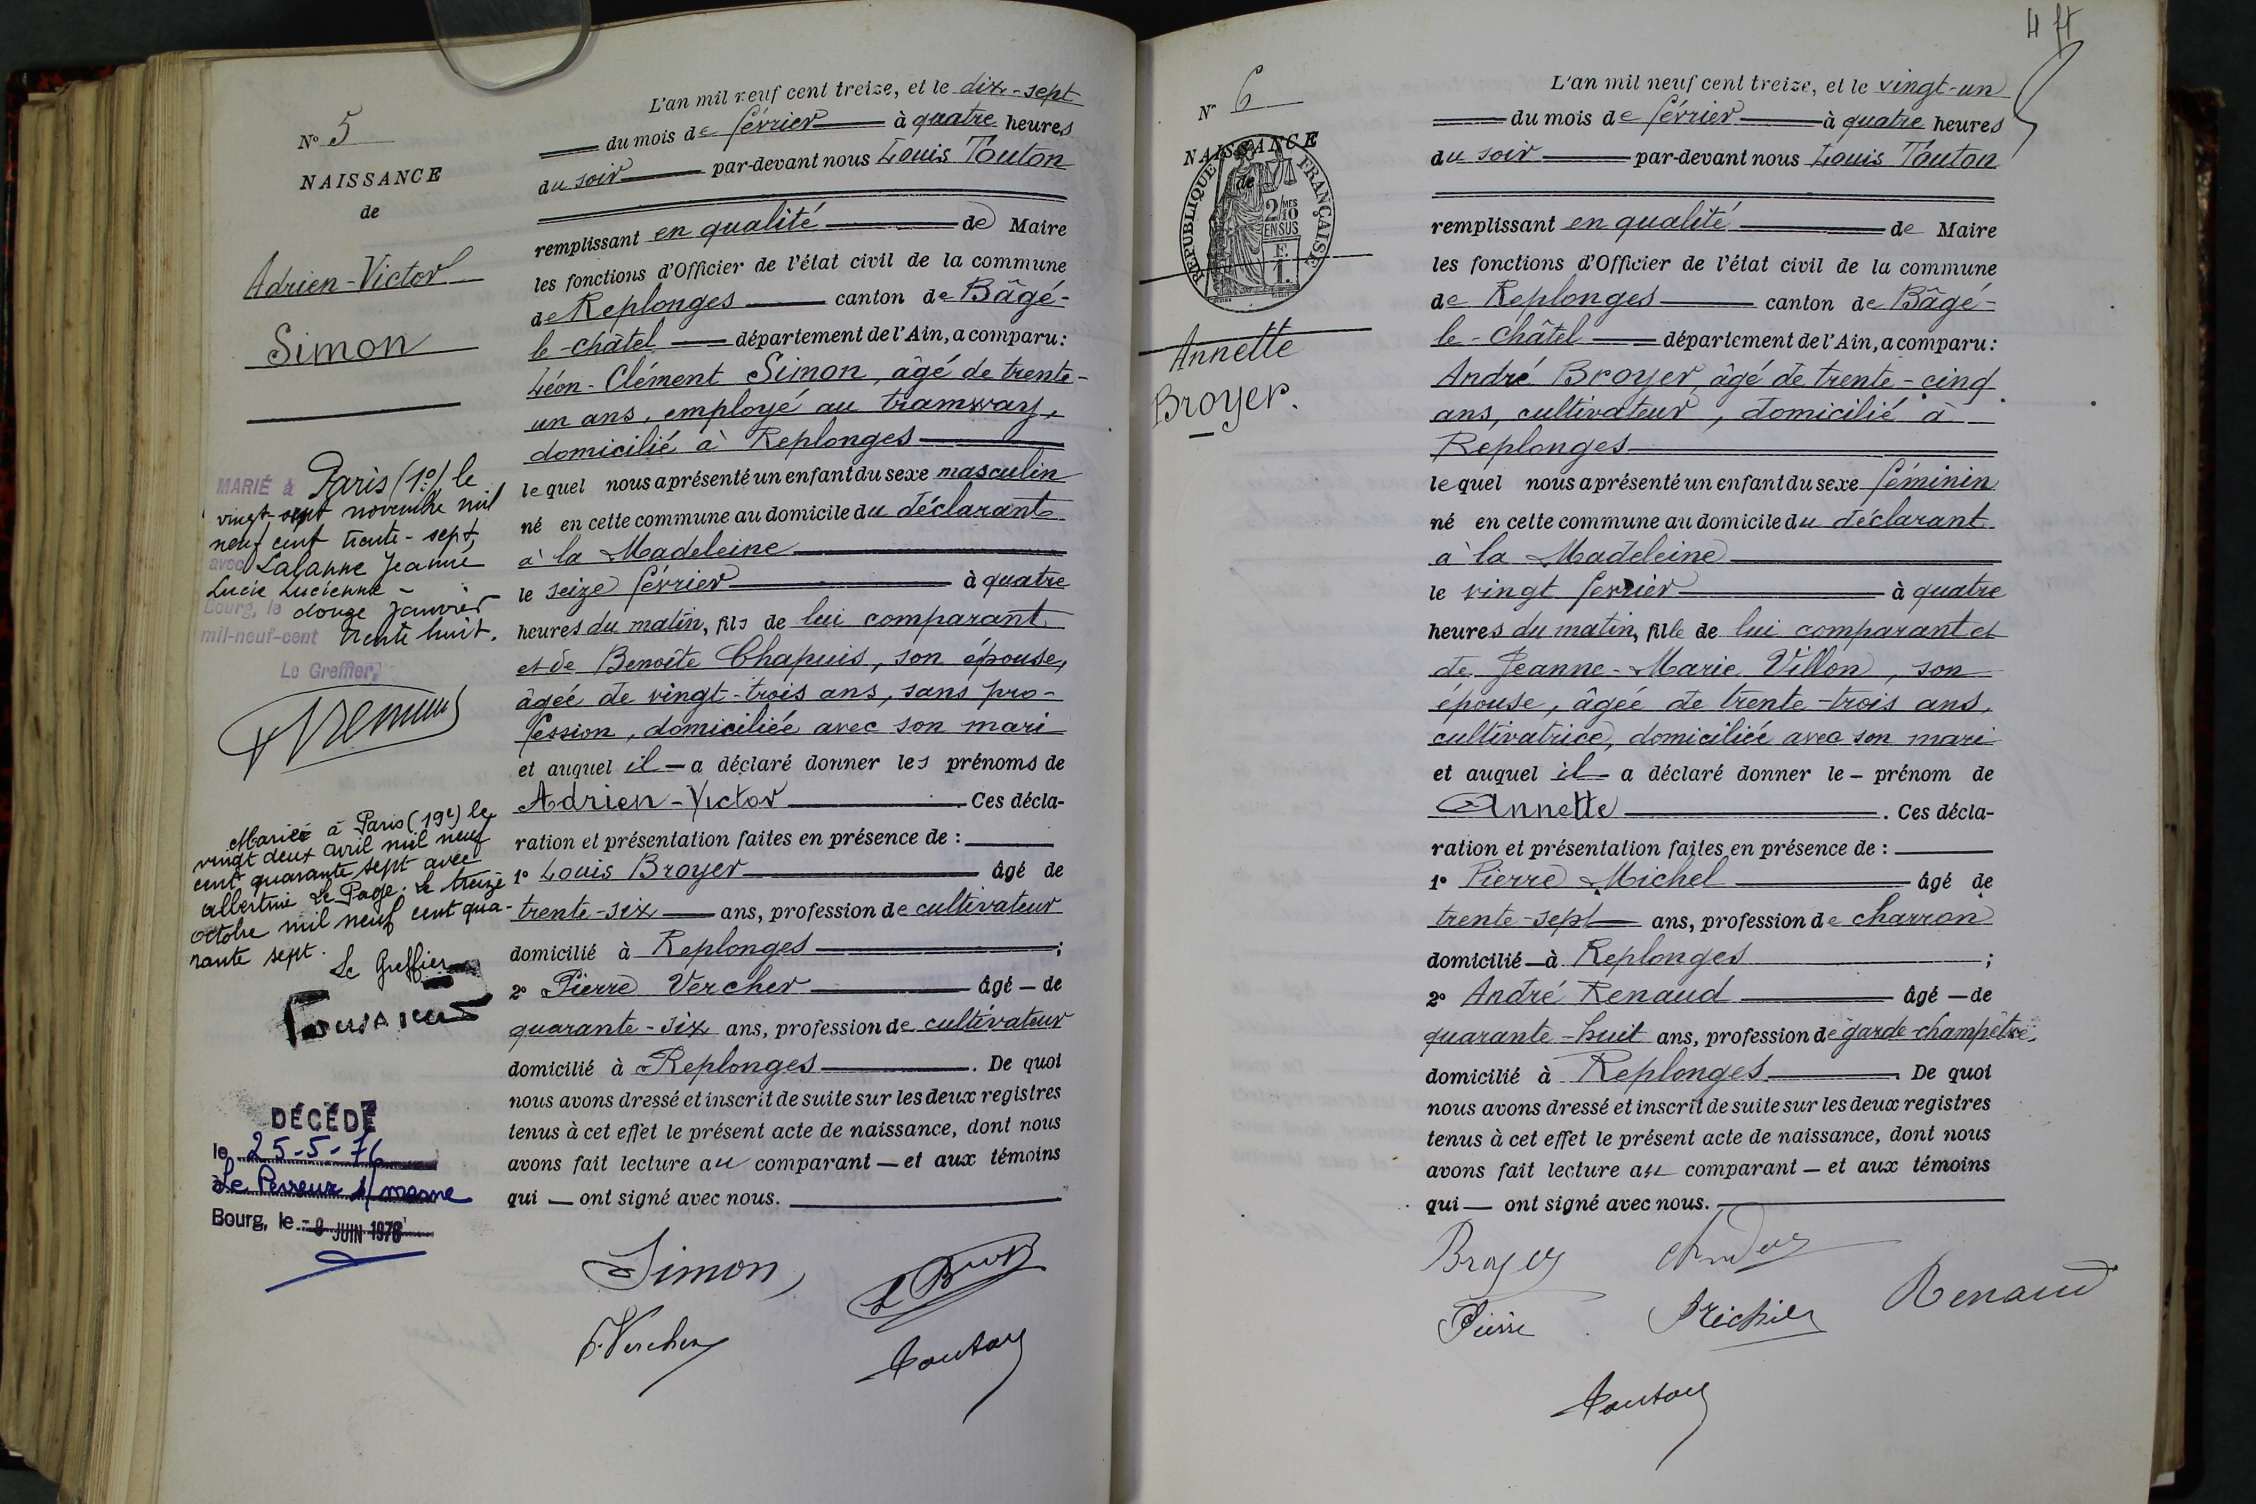 N° 5
NAISSANCE
de
Adrien-Victor
Simon
MARIÉ à Paris (1er) le
vingt-sept novembre mil
neuf cent trente-sept,
avec Lalanne Jeanne
Lucie Lucienne -
Bourg, le douze janvier
mil-neuf-cent trente huit.
Le Greffier,
Marié à Paris (19e) le
vingt deux avril mil neuf
cent quarante sept avec
Albertine Le Page. Le treize
octobre mil neuf cent qua-
rante sept.
Le Greffier
DÉCÉDÉ
le 25-5-76
à Le Perreux s/ marne
Bourg, le JUIN 1976
L'an mil neuf cent treize, et le dix-sept
du mois de février à quatre heures
du soir par-devant nous Louis Touton
remplissant en qualité de Maire
les fonctions d'Officier de l'état civil de la commune
de Replonges canton de Bâgé-
le-châtel département de l'Ain, a comparu:
Léon-Clément Simon, âgé de trente-
un ans, employé au tramway,
domicilié à Replonges
lequel nous a présenté un enfant du sexe masculin
né en cette commune au domicile du déclarant
à la Madeleine
le seize février à quatre
heures du matin, fils de lui comparant
et de Benoîte Chapuis, son épouse,
âgée de vingt-trois ans, sans pro-
fession, domiciliée avec son mari
et auquel il — a déclaré donner les prénoms de
Adrien-Victor Ces décla-
ration et présentation faites en présence de :
1° Louis Broyer âgé de
trente-six ans, profession de cultivateur
domicilié à Replonges ;
2° Pierre Vercher âgé — de
quarante-six ans, profession de cultivateur
domicilié à Replonges . De quoi
nous avons dressé et inscrit de suite sur les deux registres
tenus à cet effet le présent acte de naissance, dont nous
avons fait lecture au comparant — et aux témoins
qui — ont signé avec nous.
Simon
P. Vercher
Touton
4
N° 6
NAISSANCE
de
RÉPUBLIQUE FRANÇAISE
2/10 MES
EN SUS
Annette
Broyer.
L'an mil neuf cent treize, et le vingt-un
du mois de février à quatre heures
du soir par-devant nous Louis Touton
remplissant en qualité de Maire
les fonctions d'Officier de l'état civil de la commune
de Replonges canton de Bâgé-
le-Châtel département de l'Ain, a comparu:
André Broyer, âgé de trente-cinq
ans, cultivateur, domicilié à
Replonges
lequel nous a présenté un enfant du sexe féminin
né en cette commune au domicile du déclarant
à la Madeleine
le vingt février à quatre
heures du matin, fille de lui comparant et
de Jeanne-Marie Villon, son
épouse, âgée de trente-trois ans,
cultivatrice, domiciliée avec son mari
et auquel il — a déclaré donner le — prénom de
Annette . Ces décla-
ration et présentation faites en présence de :
1° Pierre Michel âgé de
trente-sept ans, profession de charron
domicilié — à Replonges ;
2° André Renaud âgé — de
quarante-huit ans, profession de garde-champêtre
domicilié à Replonges . De quoi
nous avons dressé et inscrit de suite sur les deux registres
tenus à cet effet le présent acte de naissance, dont nous
avons fait lecture au comparant — et aux témoins
qui — ont signé avec nous.
Broyer André
Renaud
Pierre Michel
Touton